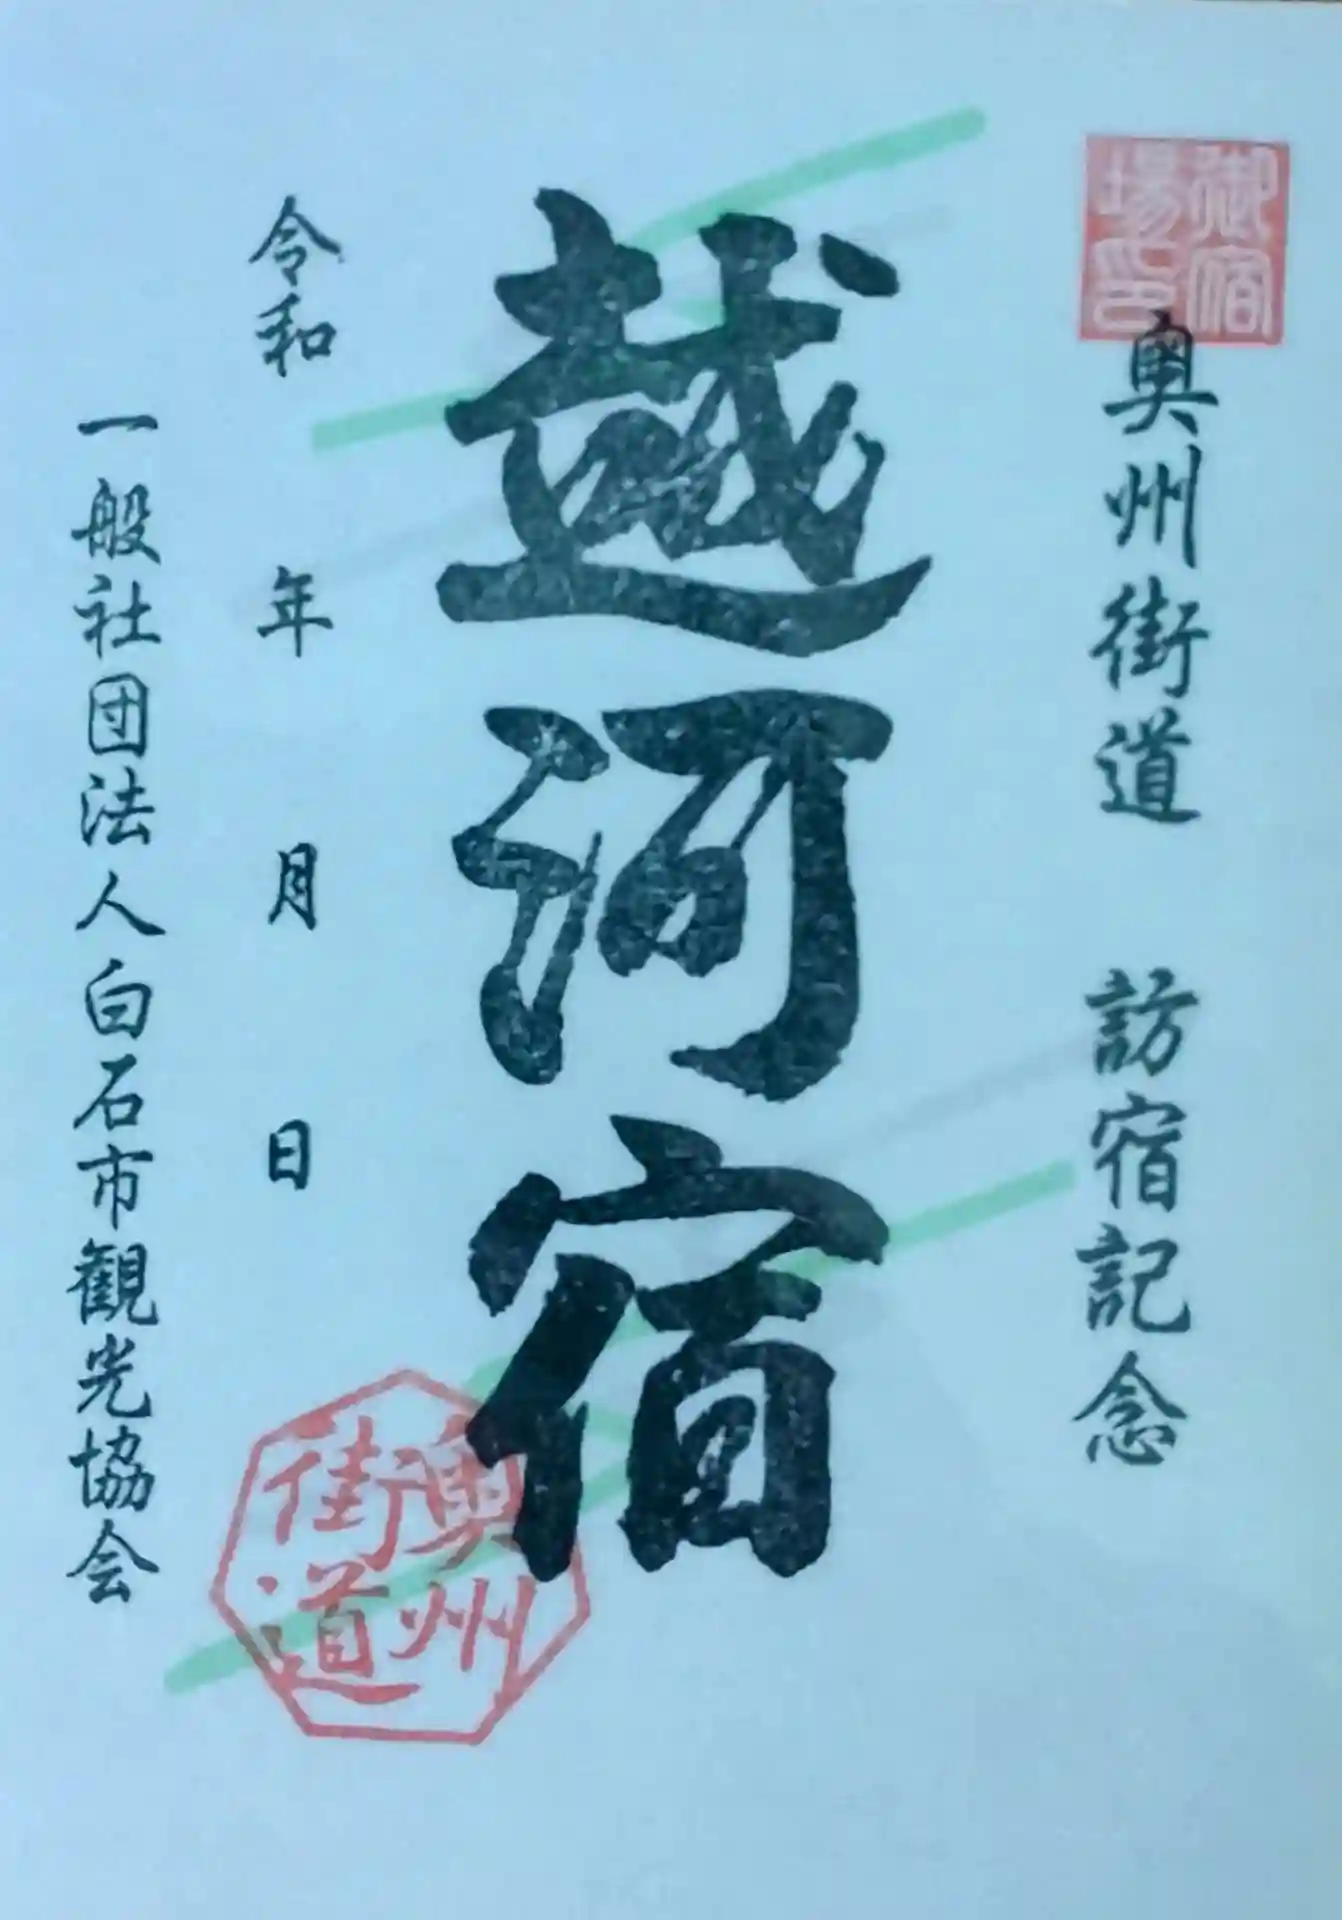 御宿場印
奥州街道　訪宿記念
越河宿
令和　年　月　日
一般社団法人白石市観光協会
奥州街道